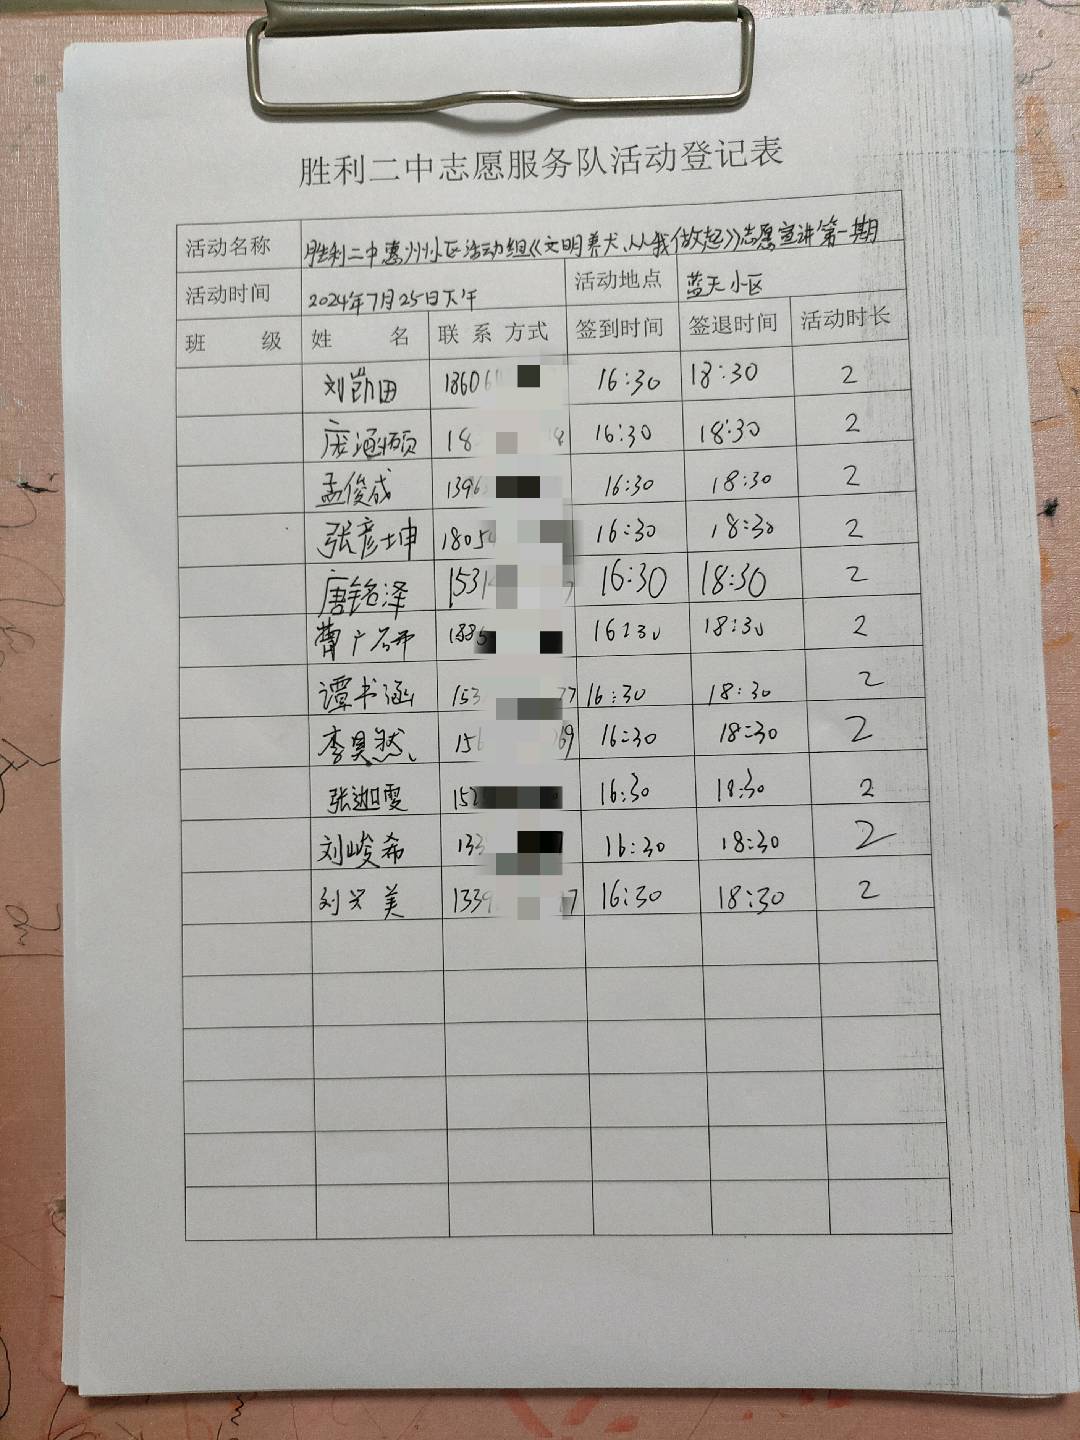 胜利二中志愿服务队活动登记表
活动名称 胜利二中惠州小区活动组《文明养犬,从我做起》志愿宣讲第一期
活动时间 2024年7月25日下午 活动地点 蓝天小区
班 级 姓 名 联系方式 签到时间 签退时间 活动时长
刘凯田 1860 16:30 18:30 2
庞涵硕 18 16:30 18:30 2
孟俊成 1396 16:30 18:30 2
张彦坤 1805 16:30 18:30 2
唐铭泽 1531 16:30 18:30 2
曹广研 1885 16:30 18:30 2
谭书涵 153 77 16:30 18:30 2
李昊然 15 69 16:30 18:30 2
张迦雯 152 16:30 18:30 2
刘峻希 133 16:30 18:30 2
刘兴美 1339 7 16:30 18:30 2